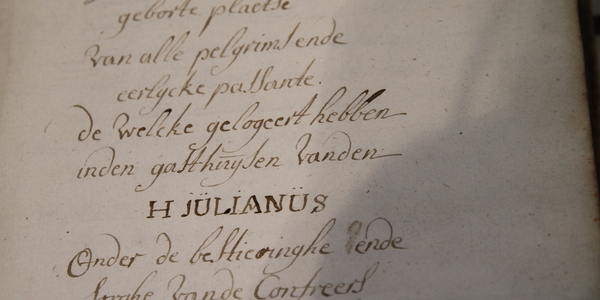 geborte plaetse
van alle pelgrims ende
eerlycke passante.
de welcke gelogeert hebben
inden gasthuysen vanden
H JÜLIANÜS
Onder de bestieringhe ende
vande Confreers